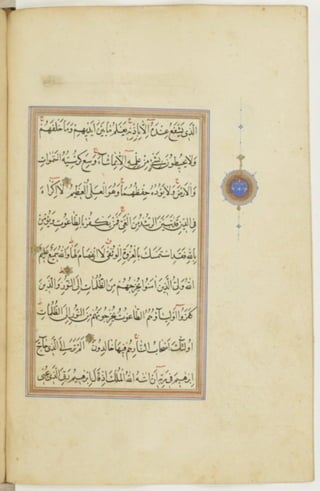 الَّذِي يَشْفَعُ عِنْدَهُ إِلَّا بِإِذْنِهِ يَعْلَمُ مَا بَيْنَ أَيْدِيهِمْ وَمَا خَلْفَهُمْ
وَلَا يُحِيطُونَ بِشَيْءٍ مِنْ عِلْمِهِ إِلَّا بِمَا شَاءَ وَسِعَ كُرْسِيُّهُ السَّمَوَاتِ
وَالْأَرْضَ وَلَا يَؤُدُهُ حِفْظُهُمَا وَهُوَ الْعَلِيُّ الْعَظِيمُ لَا إِكْرَاهَ
فِي الدِّينِ قَدْ تَبَيَّنَ الرُّشْدُ مِنَ الْغَيِّ فَمَنْ يَكْفُرْ بِالطَّاغُوتِ وَيُؤْمِنْ
بِاللَّهِ فَقَدِ اسْتَمْسَكَ بِالْعُرْوَةِ الْوُثْقَى لَا انْفِصَامَ لَهَا وَاللَّهُ سَمِيعٌ عَلِيمٌ
اللَّهُ وَلِيُّ الَّذِينَ آمَنُوا يُخْرِجُهُمْ مِنَ الظُّلُمَاتِ إِلَى النُّورِ وَالَّذِينَ
كَفَرُوا أَوْلِيَاؤُهُمُ الطَّاغُوتُ يُخْرِجُونَهُمْ مِنَ النُّورِ إِلَى الظُّلُمَاتِ
أُولَئِكَ أَصْحَابُ النَّارِ هُمْ فِيهَا خَالِدُونَ أَلَمْ تَرَ إِلَى الَّذِي حَاجَّ
إِبْرَهِيمَ فِي رَبِّهِ أَنْ آتَاهُ اللَّهُ الْمُلْكَ إِذْ قَالَ إِبْرَهِيمُ رَبِّيَ الَّذِي يُحْيِي